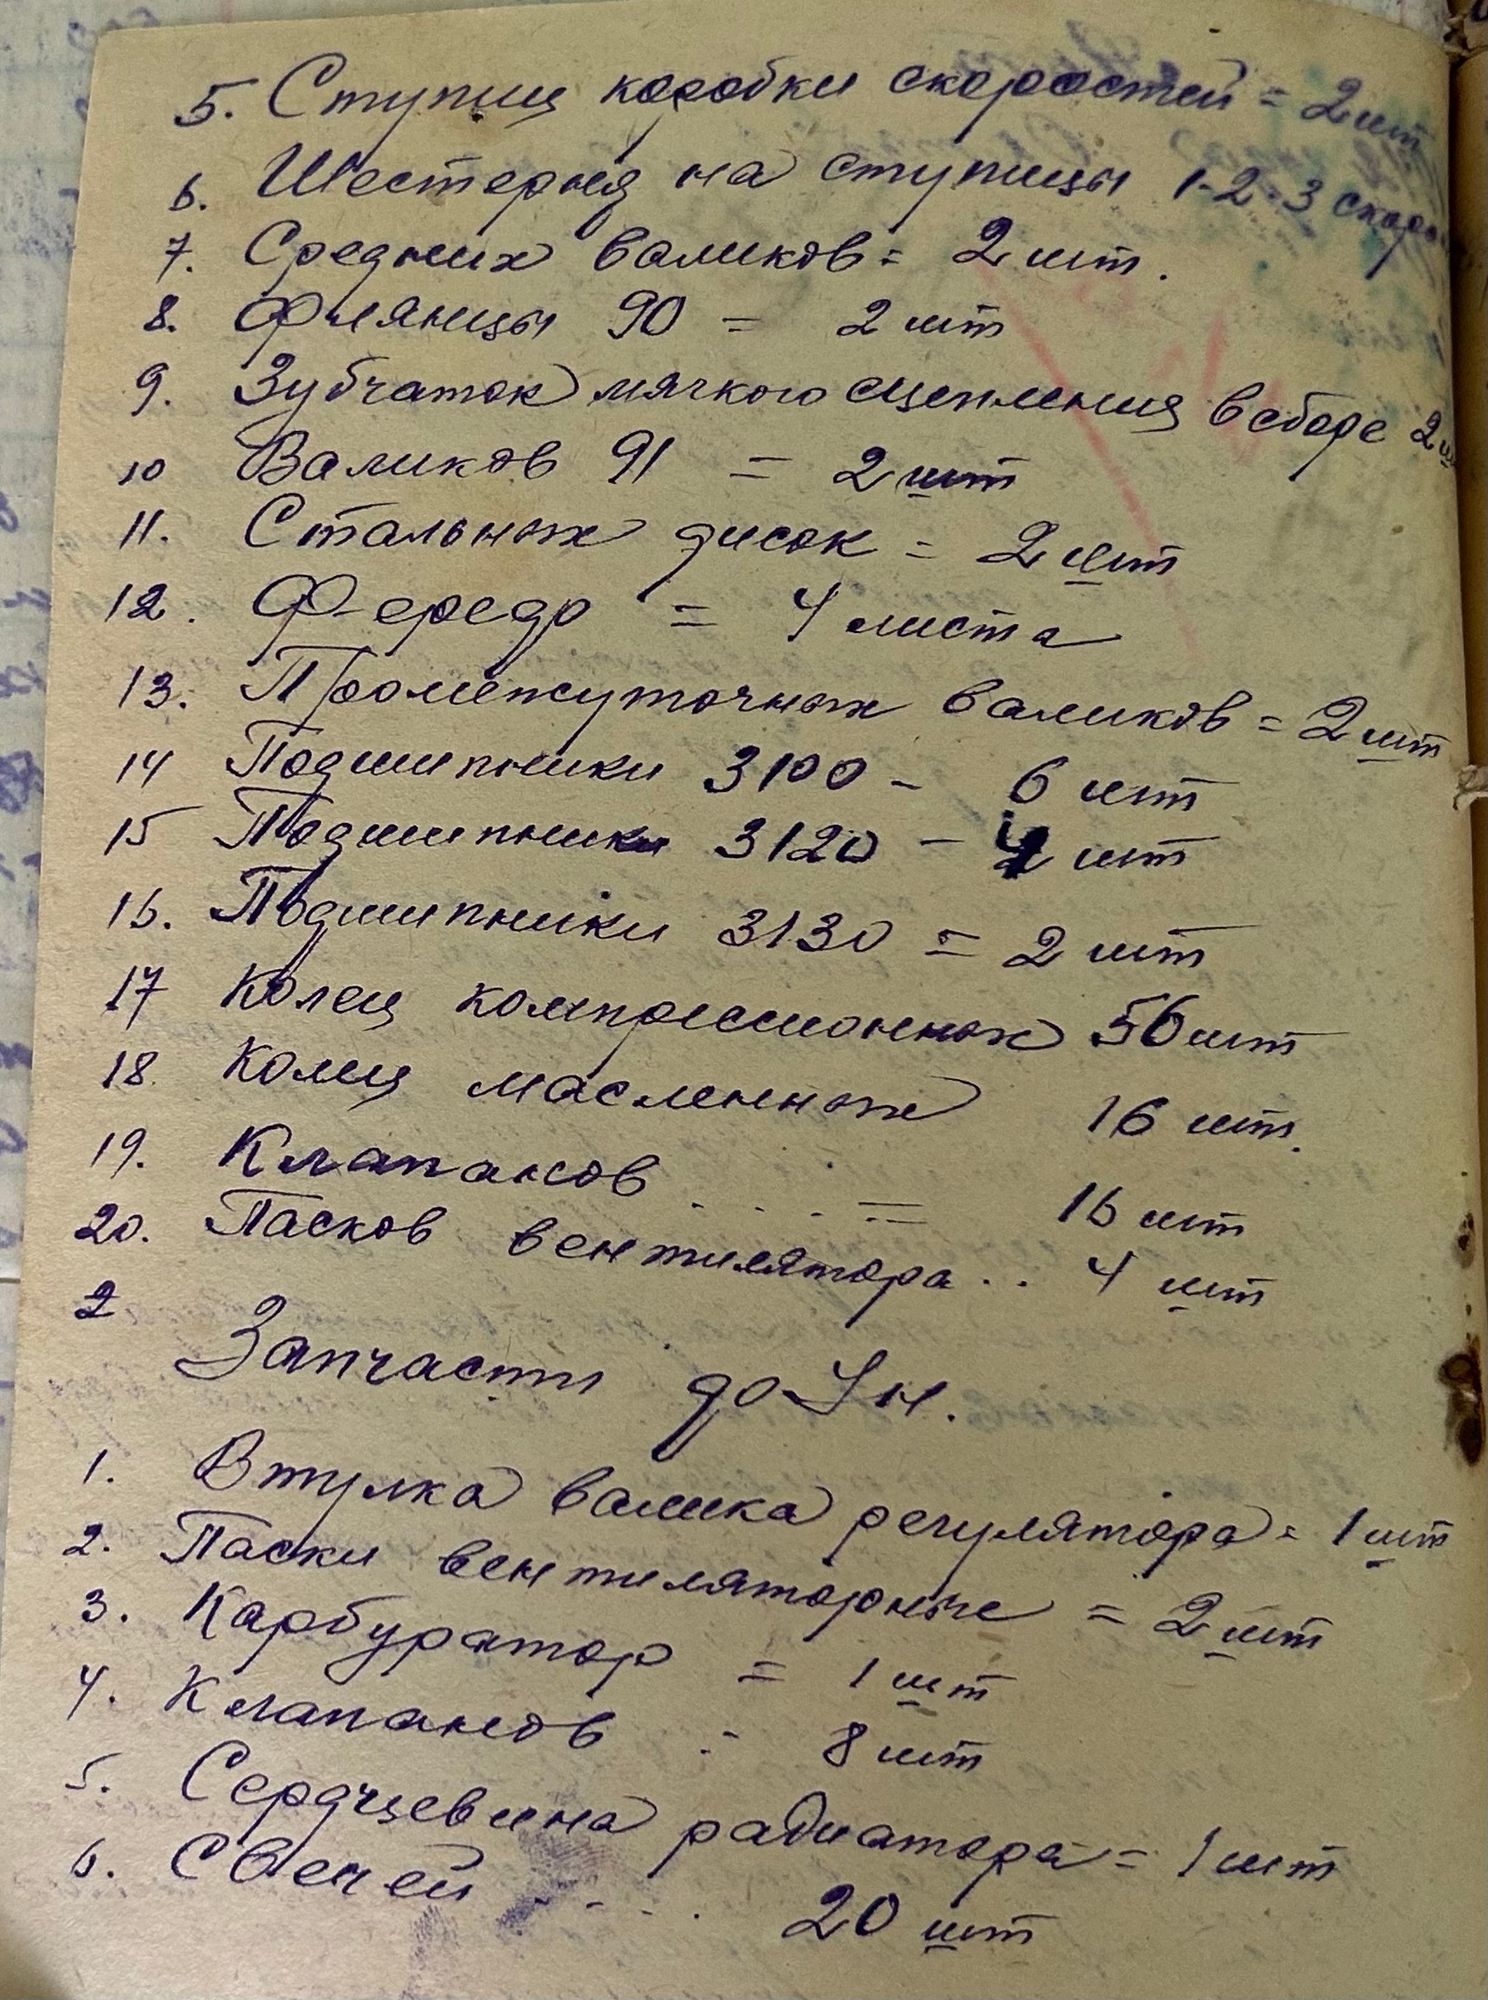 5. Ступиц коробки скоростей = 2 шт
6. Шестерня на ступицы 1-2-3 скоро
7. Средних валиков = 2 шт.
8. Флянцы 90 = 2 шт
9. Зубчаток мягкого сцепления в сборе 2 ш
10 Валиков 91 = 2 шт
11. Стальных дисок = 2 шт
12. Ф-ередо = 4 листа
13. Промежуточных валиков = 2 шт
14 Подшипники 3100 - 6 шт
15 Подшипники 3120 - 4 шт
16. Подшипники 3130 = 2 шт
17 Колец компрессионных 56 шт
18. Колец масленных 16 шт.
19. Клапанов . . . = 16 шт
20. Пасков вентилятора . . 4 шт
2 Запчасти до Ун.
1. Втулка валика регулятора = 1 шт
2. Паски вентиляторные = 2 шт
3. Карбуратор = 1 шт
4. Клапанов - 8 шт
5. Сердцевина радиатора = 1 шт
6. Свечей - - - . 20 шт